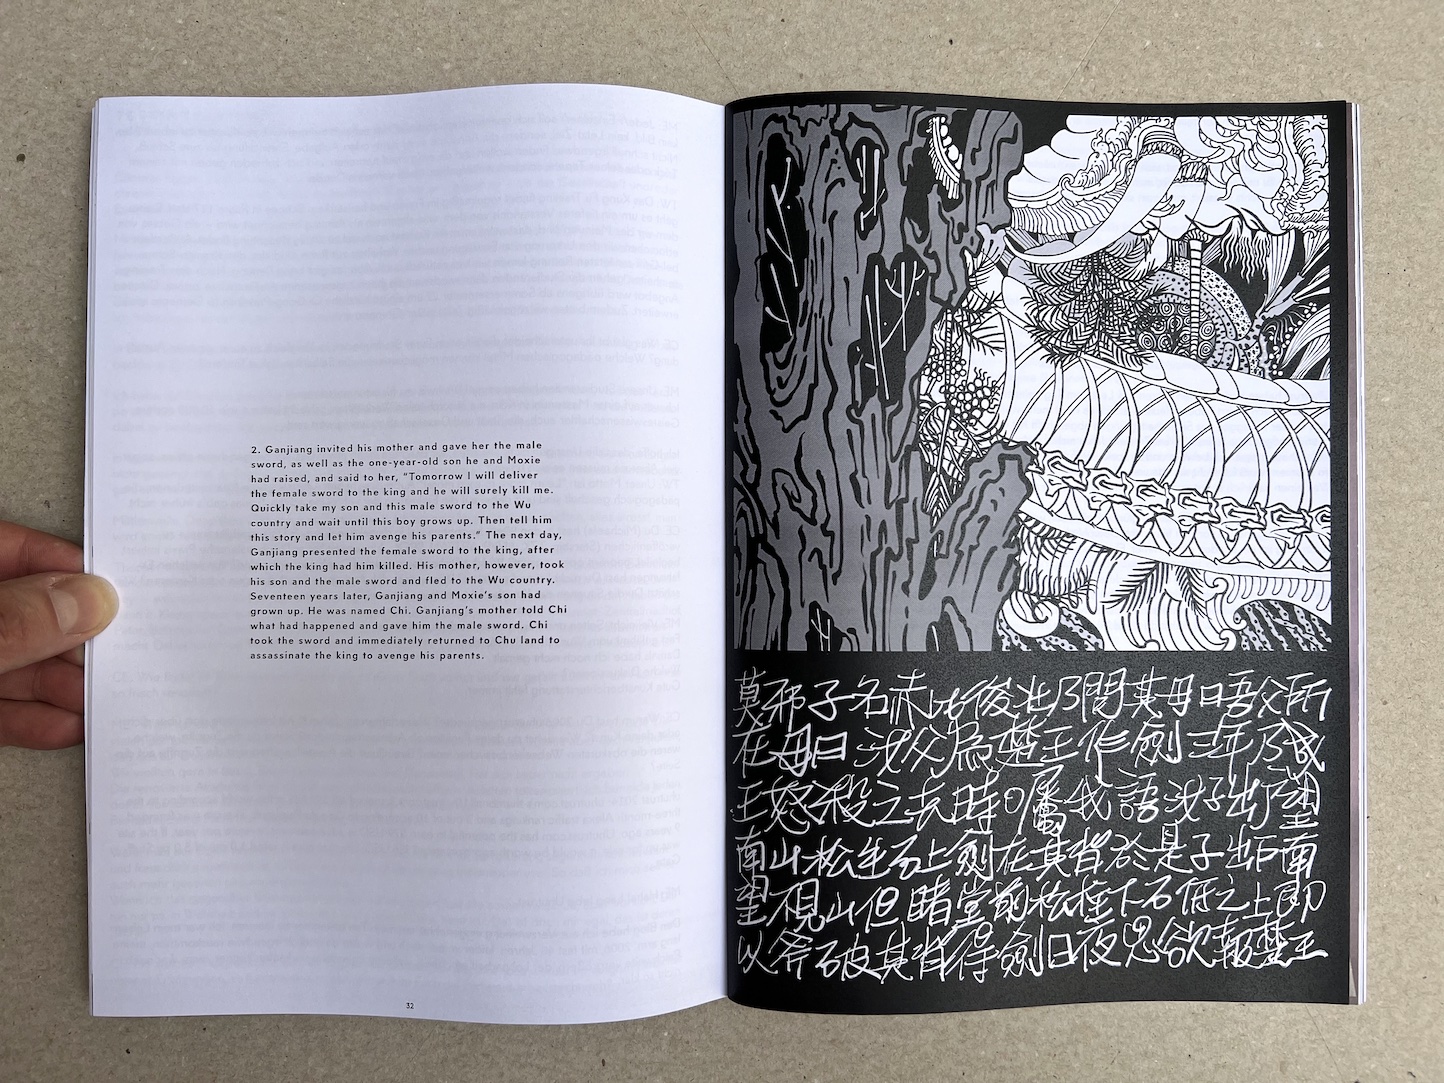 2. Ganjiang invited his mother and gave her the male
sword, as well as the one-year-old son he and Moxie
had raised, and said to her, “Tomorrow I will deliver
the female sword to the king and he will surely kill me.
Quickly take my son and this male sword to the Wu
country and wait until this boy grows up. Then tell him
this story and let him avenge his parents.” The next day,
Ganjiang presented the female sword to the king, after
which the king had him killed. His mother, however, took
his son and the male sword and fled to the Wu country.
Seventeen years later, Ganjiang and Moxie’s son had
grown up. He was named Chi. Ganjiang’s mother told Chi
what had happened and gave him the male sword. Chi
took the sword and immediately returned to Chu land to
assassinate the king to avenge his parents.
32
莫邪子名赤比後壯乃問其母曰吾父所
在母曰汝父為楚王作劍三年乃成
王怒殺之去時囑我語汝子出戶望
南山松生石上劍在其背於是子出戶南
望不見山但睹堂前松柱下石低之上即
以斧破其背得劍日夜思欲報楚王